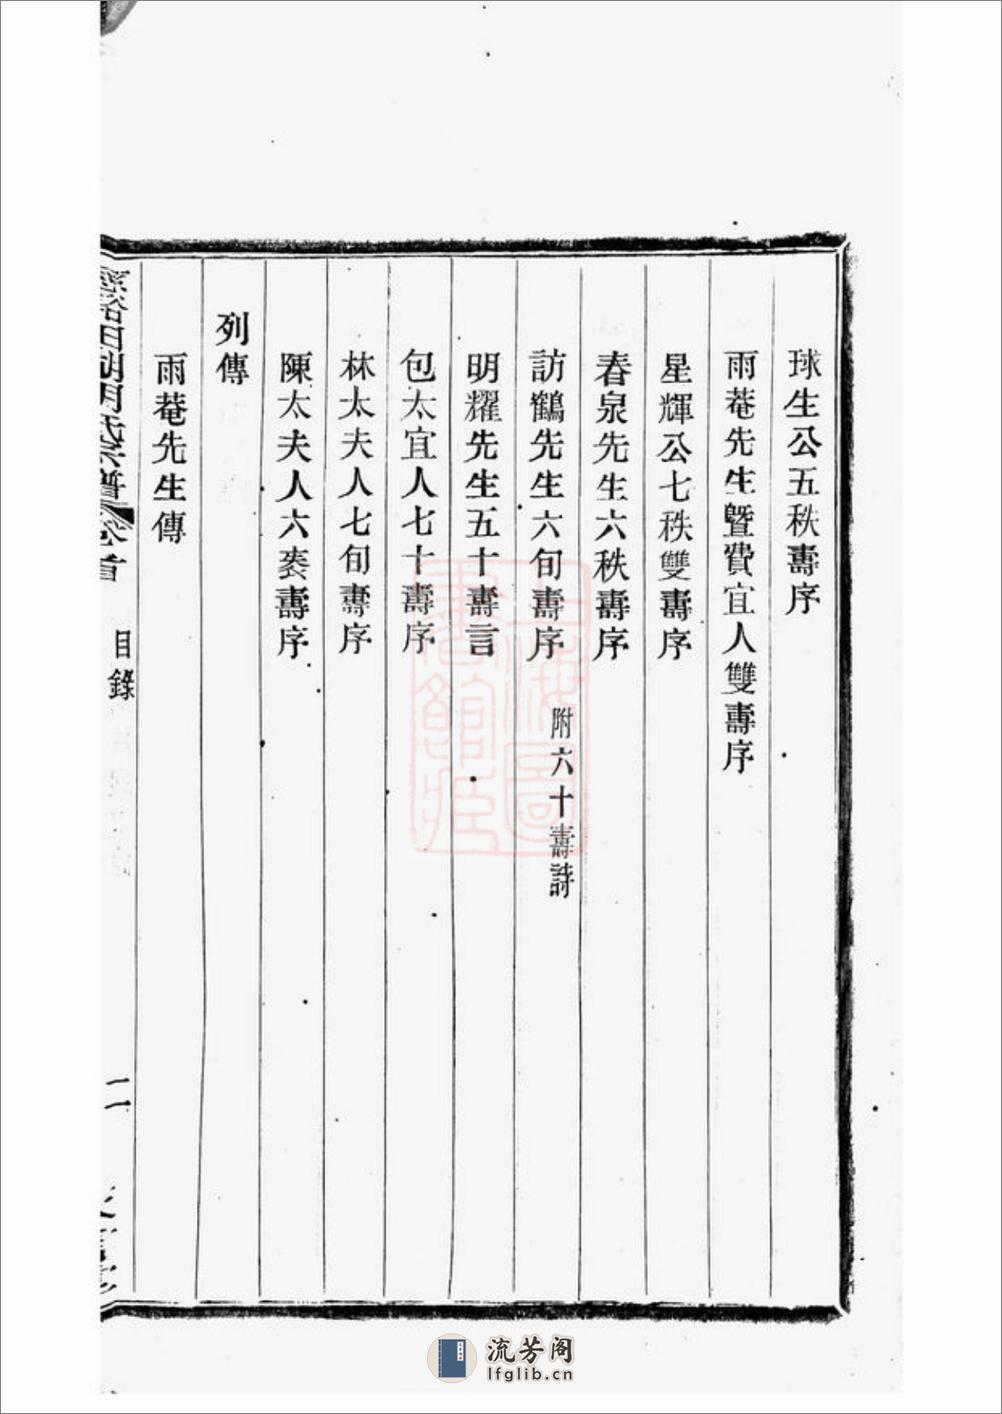 球生公五秩壽序
雨菴先生曁費宜人雙壽序
星輝公七秩雙壽序
春泉先生六秩壽序
訪鶴先生六旬壽序 附六十壽詩
明耀先生五十壽言
包太宜人七十壽序
林太夫人七旬壽序
陳太夫人六袠壽序
列傳
雨菴先生傳
目錄
二
上海圖書館藏
流芳阁
lfglib.cn